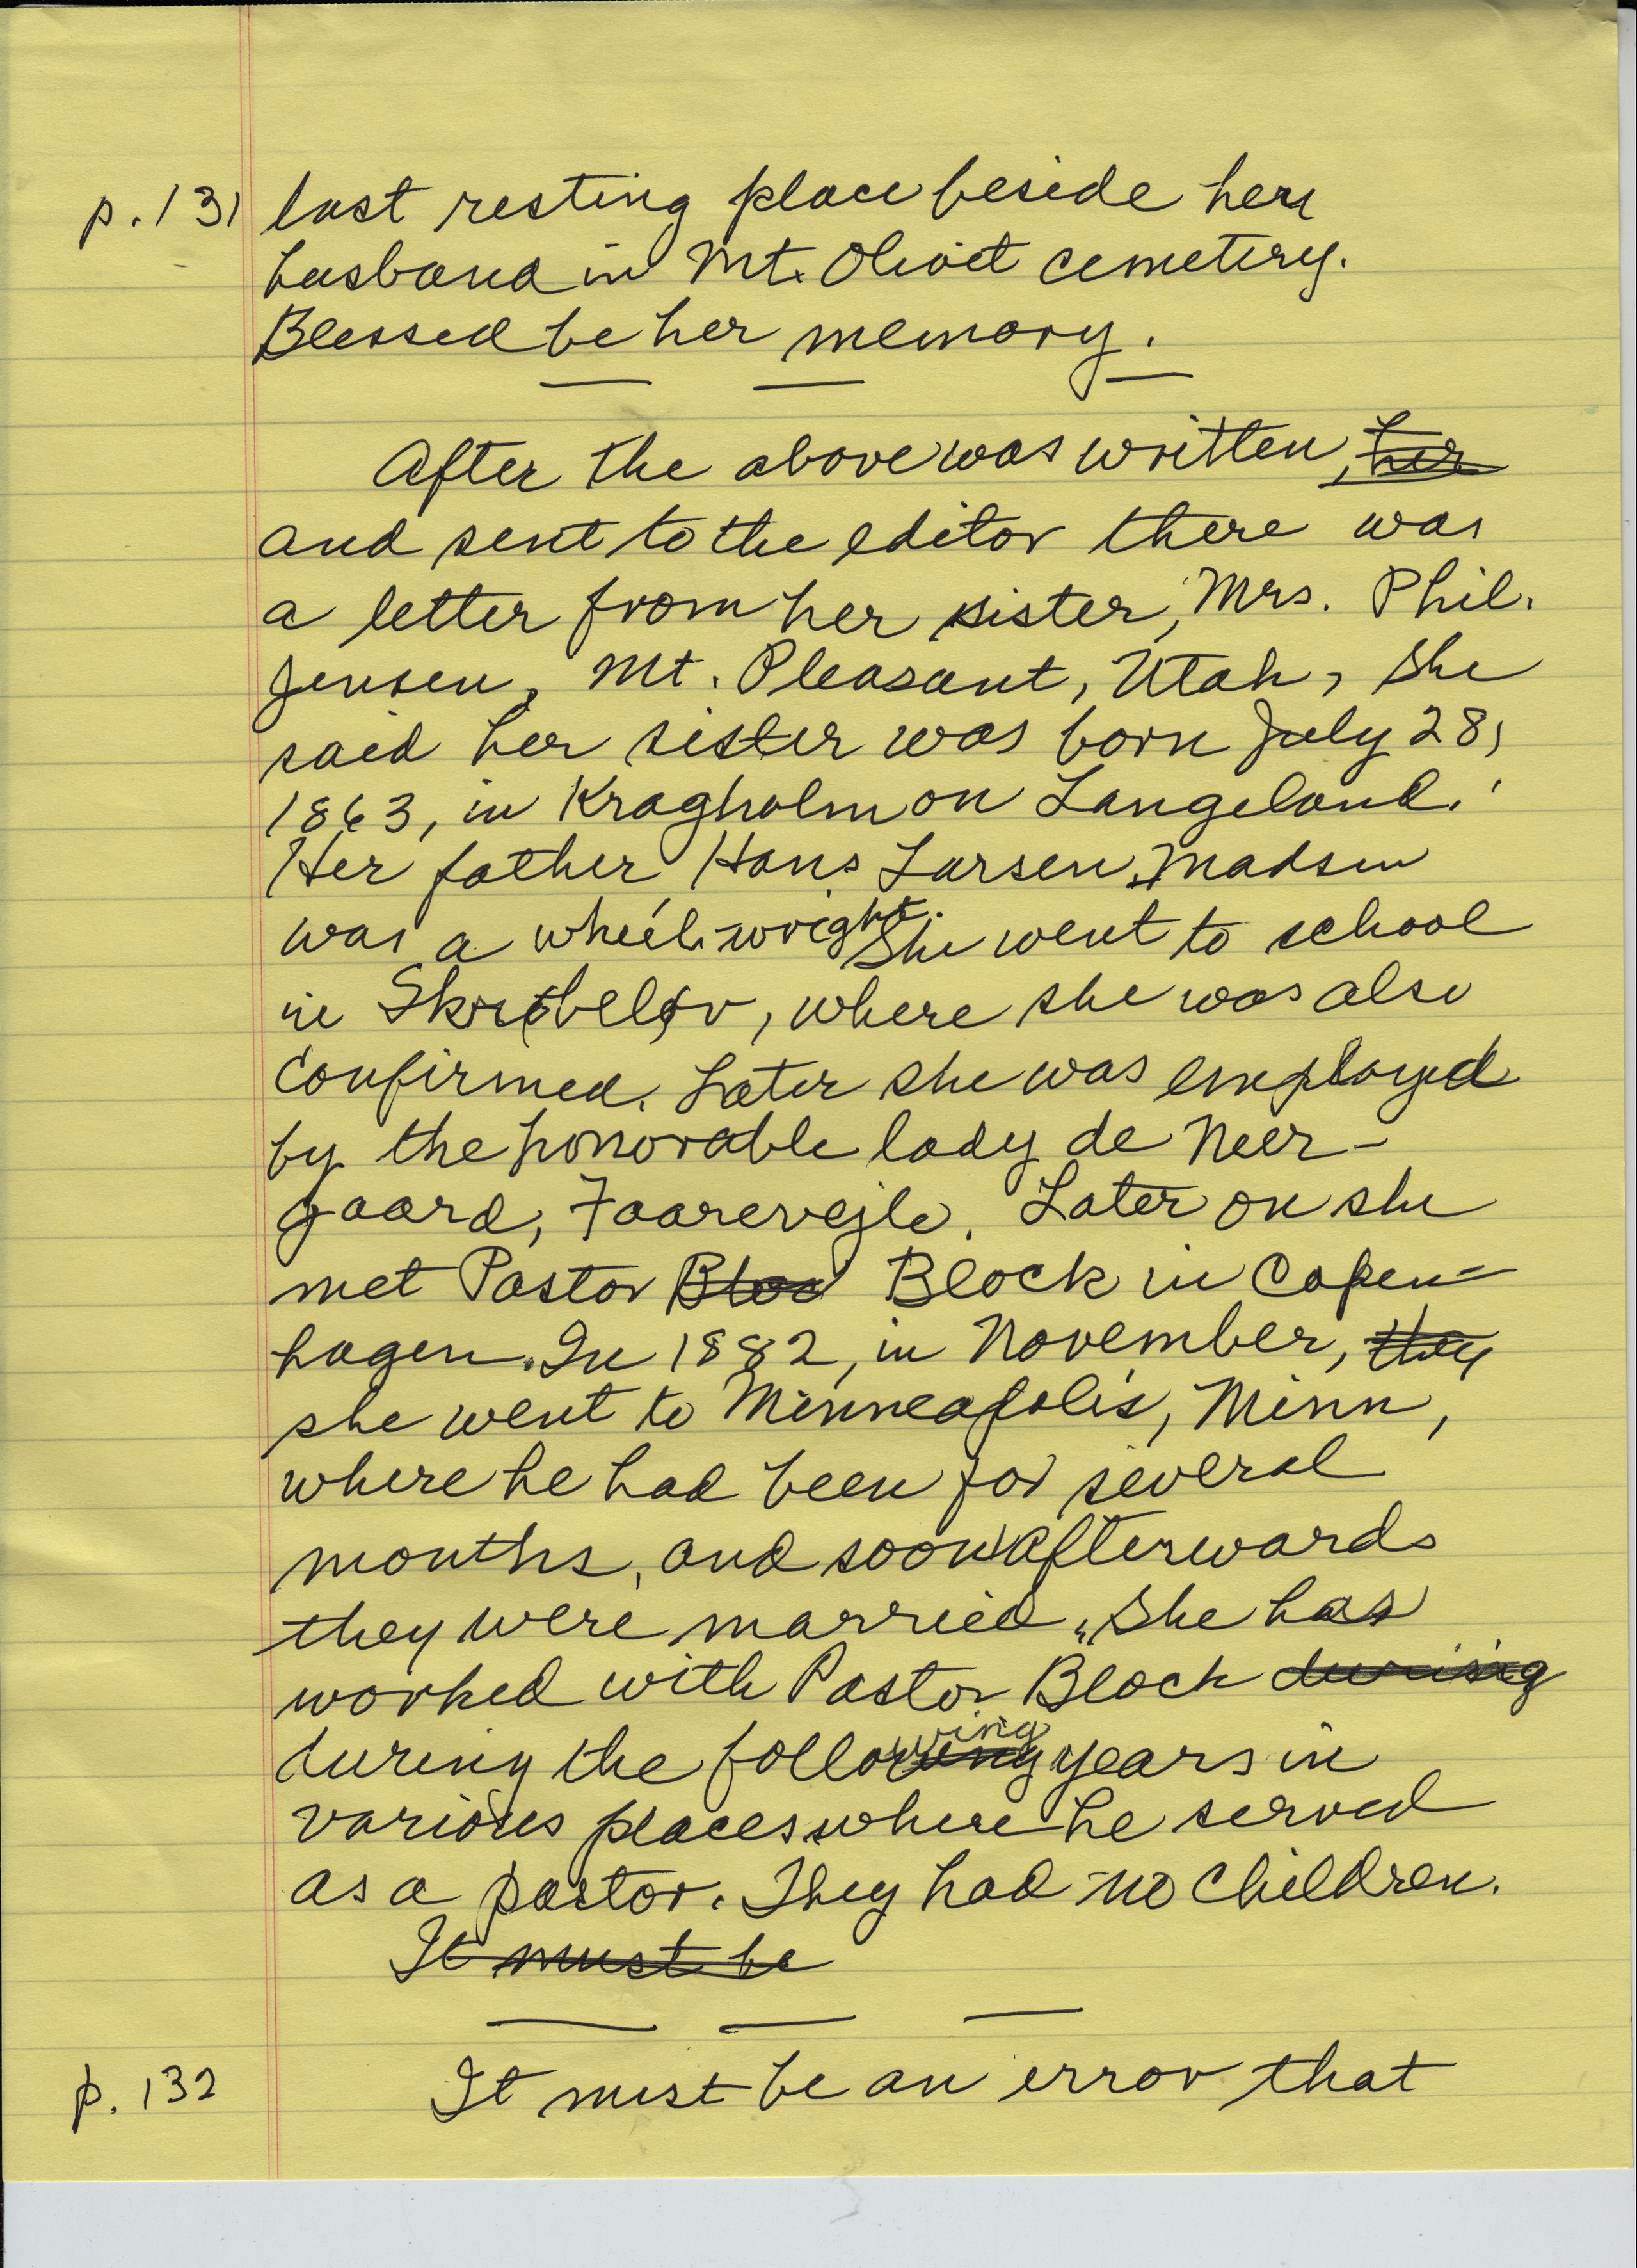 p. 131 last resting place beside her
husband in Mt. Olivet cemetery.
Blessed be her memory.
After the above was written, her
and sent to the editor there was
a letter from her sister, Mrs. Phil.
Jensen, Mt. Pleasant, Utah, She
said her sister was born July 28,
1863, in Kragholm on Langeland.
Her father Hans Larsen Madsen
was a wheel-wright. She went to school
in Skrøbeløv, where she was also
confirmed. Later she was employed
by the honorable lady de Neer-
gaard, Faarevejle. Later on she
met Pastor Bloc Block in Copen-
hagen. In 1882, in November, they
she went to Minneapolis, Minn,
where he had been for several
months, and soon afterwards
they were married. She has
worked with Pastor Block during
during the following years in
various places where he served
as a pastor. They had no children.
It must be
p. 132 It must be an error that